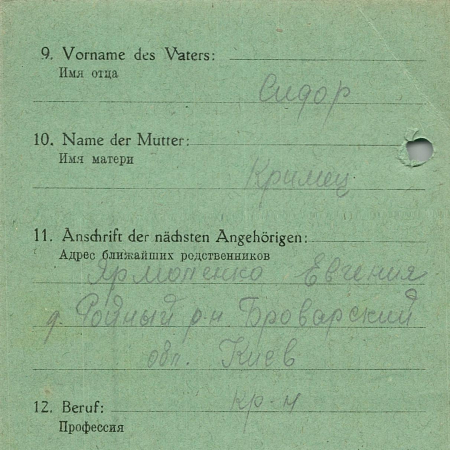 9. Vorname des Vaters:
Имя отца
Сидор
10. Name der Mutter:
Имя матери
Кримец
11. Anschrift der nächsten Angehörigen:
Адрес ближайших родственников
Ярмоленко Евгения
д. р-н Броварский
обл. Киев
12. Beruf:
кр-н
Профессия